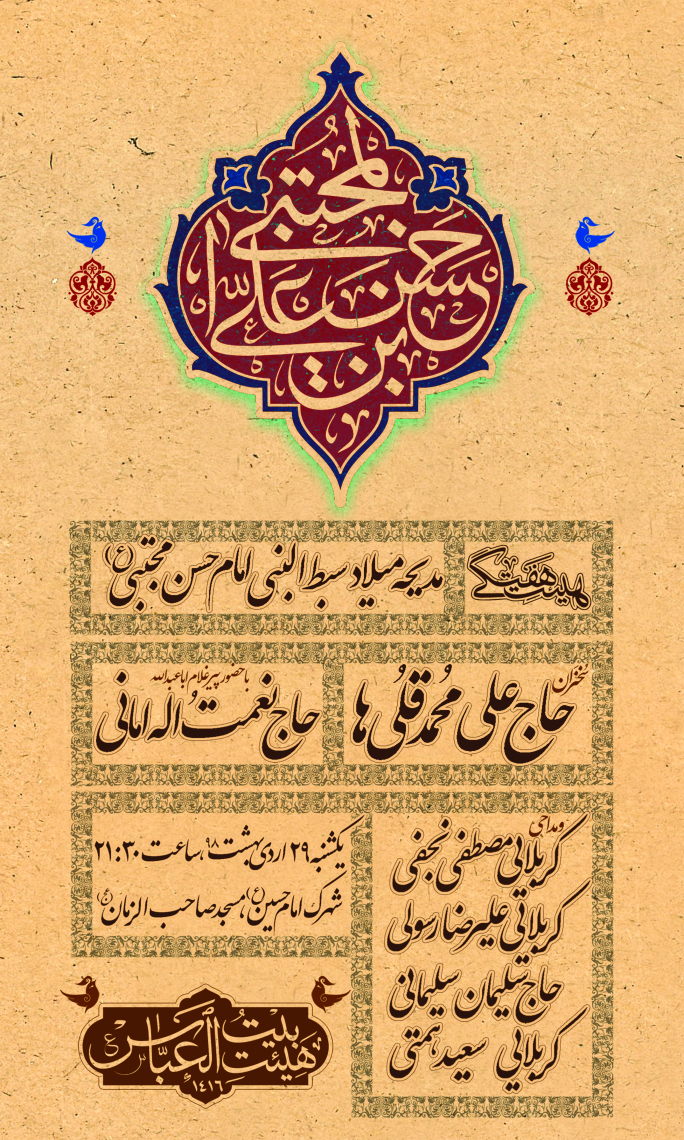 حسن بن علی المجتبی
هیئت هفتگی
مدیحه میلاد سبط النبی امام حسن مجتبی (ع)
سخنران
حاج علی محمد قلی ها
با حضور پیر غلام اباعبدالله
حاج نعمت اله امانی
و مداحی
کربلایی مصطفی نجفی
کربلائی علیرضا رسولی
حاج سلیمان سلیمانی
کربلایی سعید همتی
یکشنبه ۲۹ اردیبهشت ۹۸، ساعت ۲۱:۳۰
شهرک امام حسین (ع)، مسجد صاحب الزمان (ع)
هیئت بیت العباس
۱۴۱۶